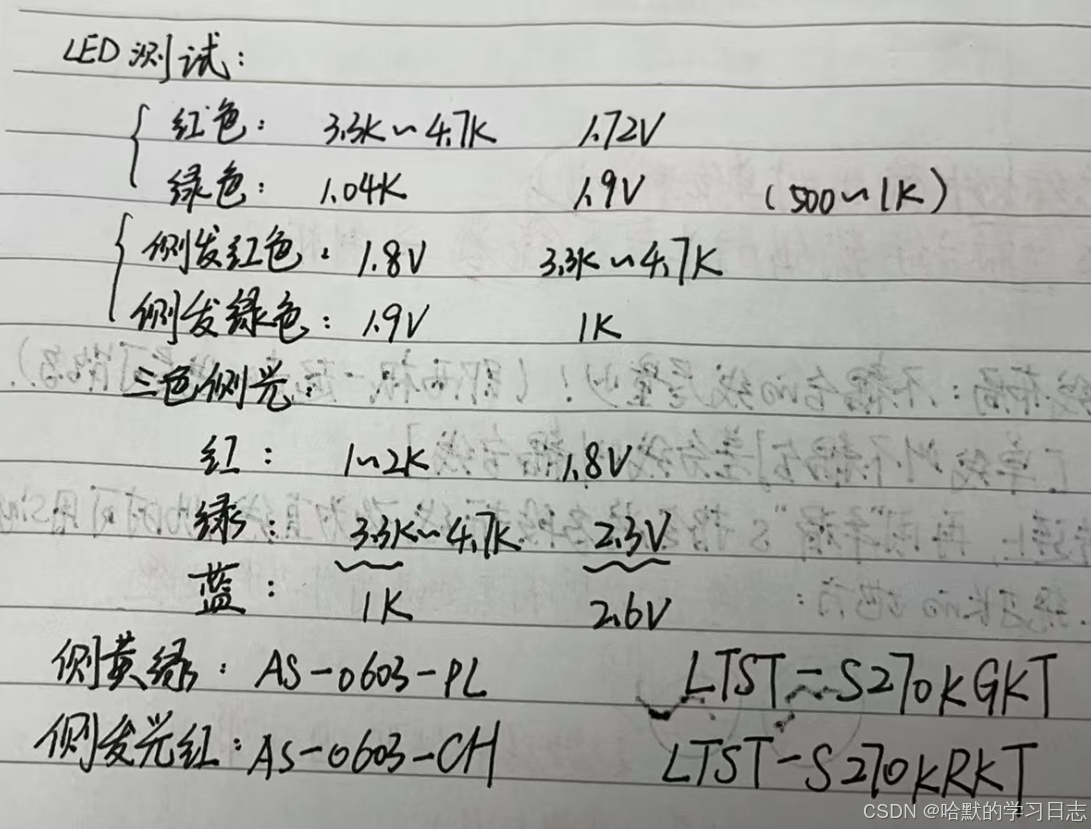 LED测试:
红色: 3.3K~4.7K 1.72V
绿色: 1.04K 1.9V (500~1K)
侧发红色: 1.8V 3.3K~4.7K
侧发绿色: 1.9V 1K
三色侧光:
红: 1~2K 1.8V
绿: 3.3K~4.7K 2.3V
蓝: 1K 2.6V
侧黄绿: AS-0603-PL LTST-S270KGKT
侧发光红: AS-0603-CH LTST-S270KRKT
CSDN @哈默的学习日志